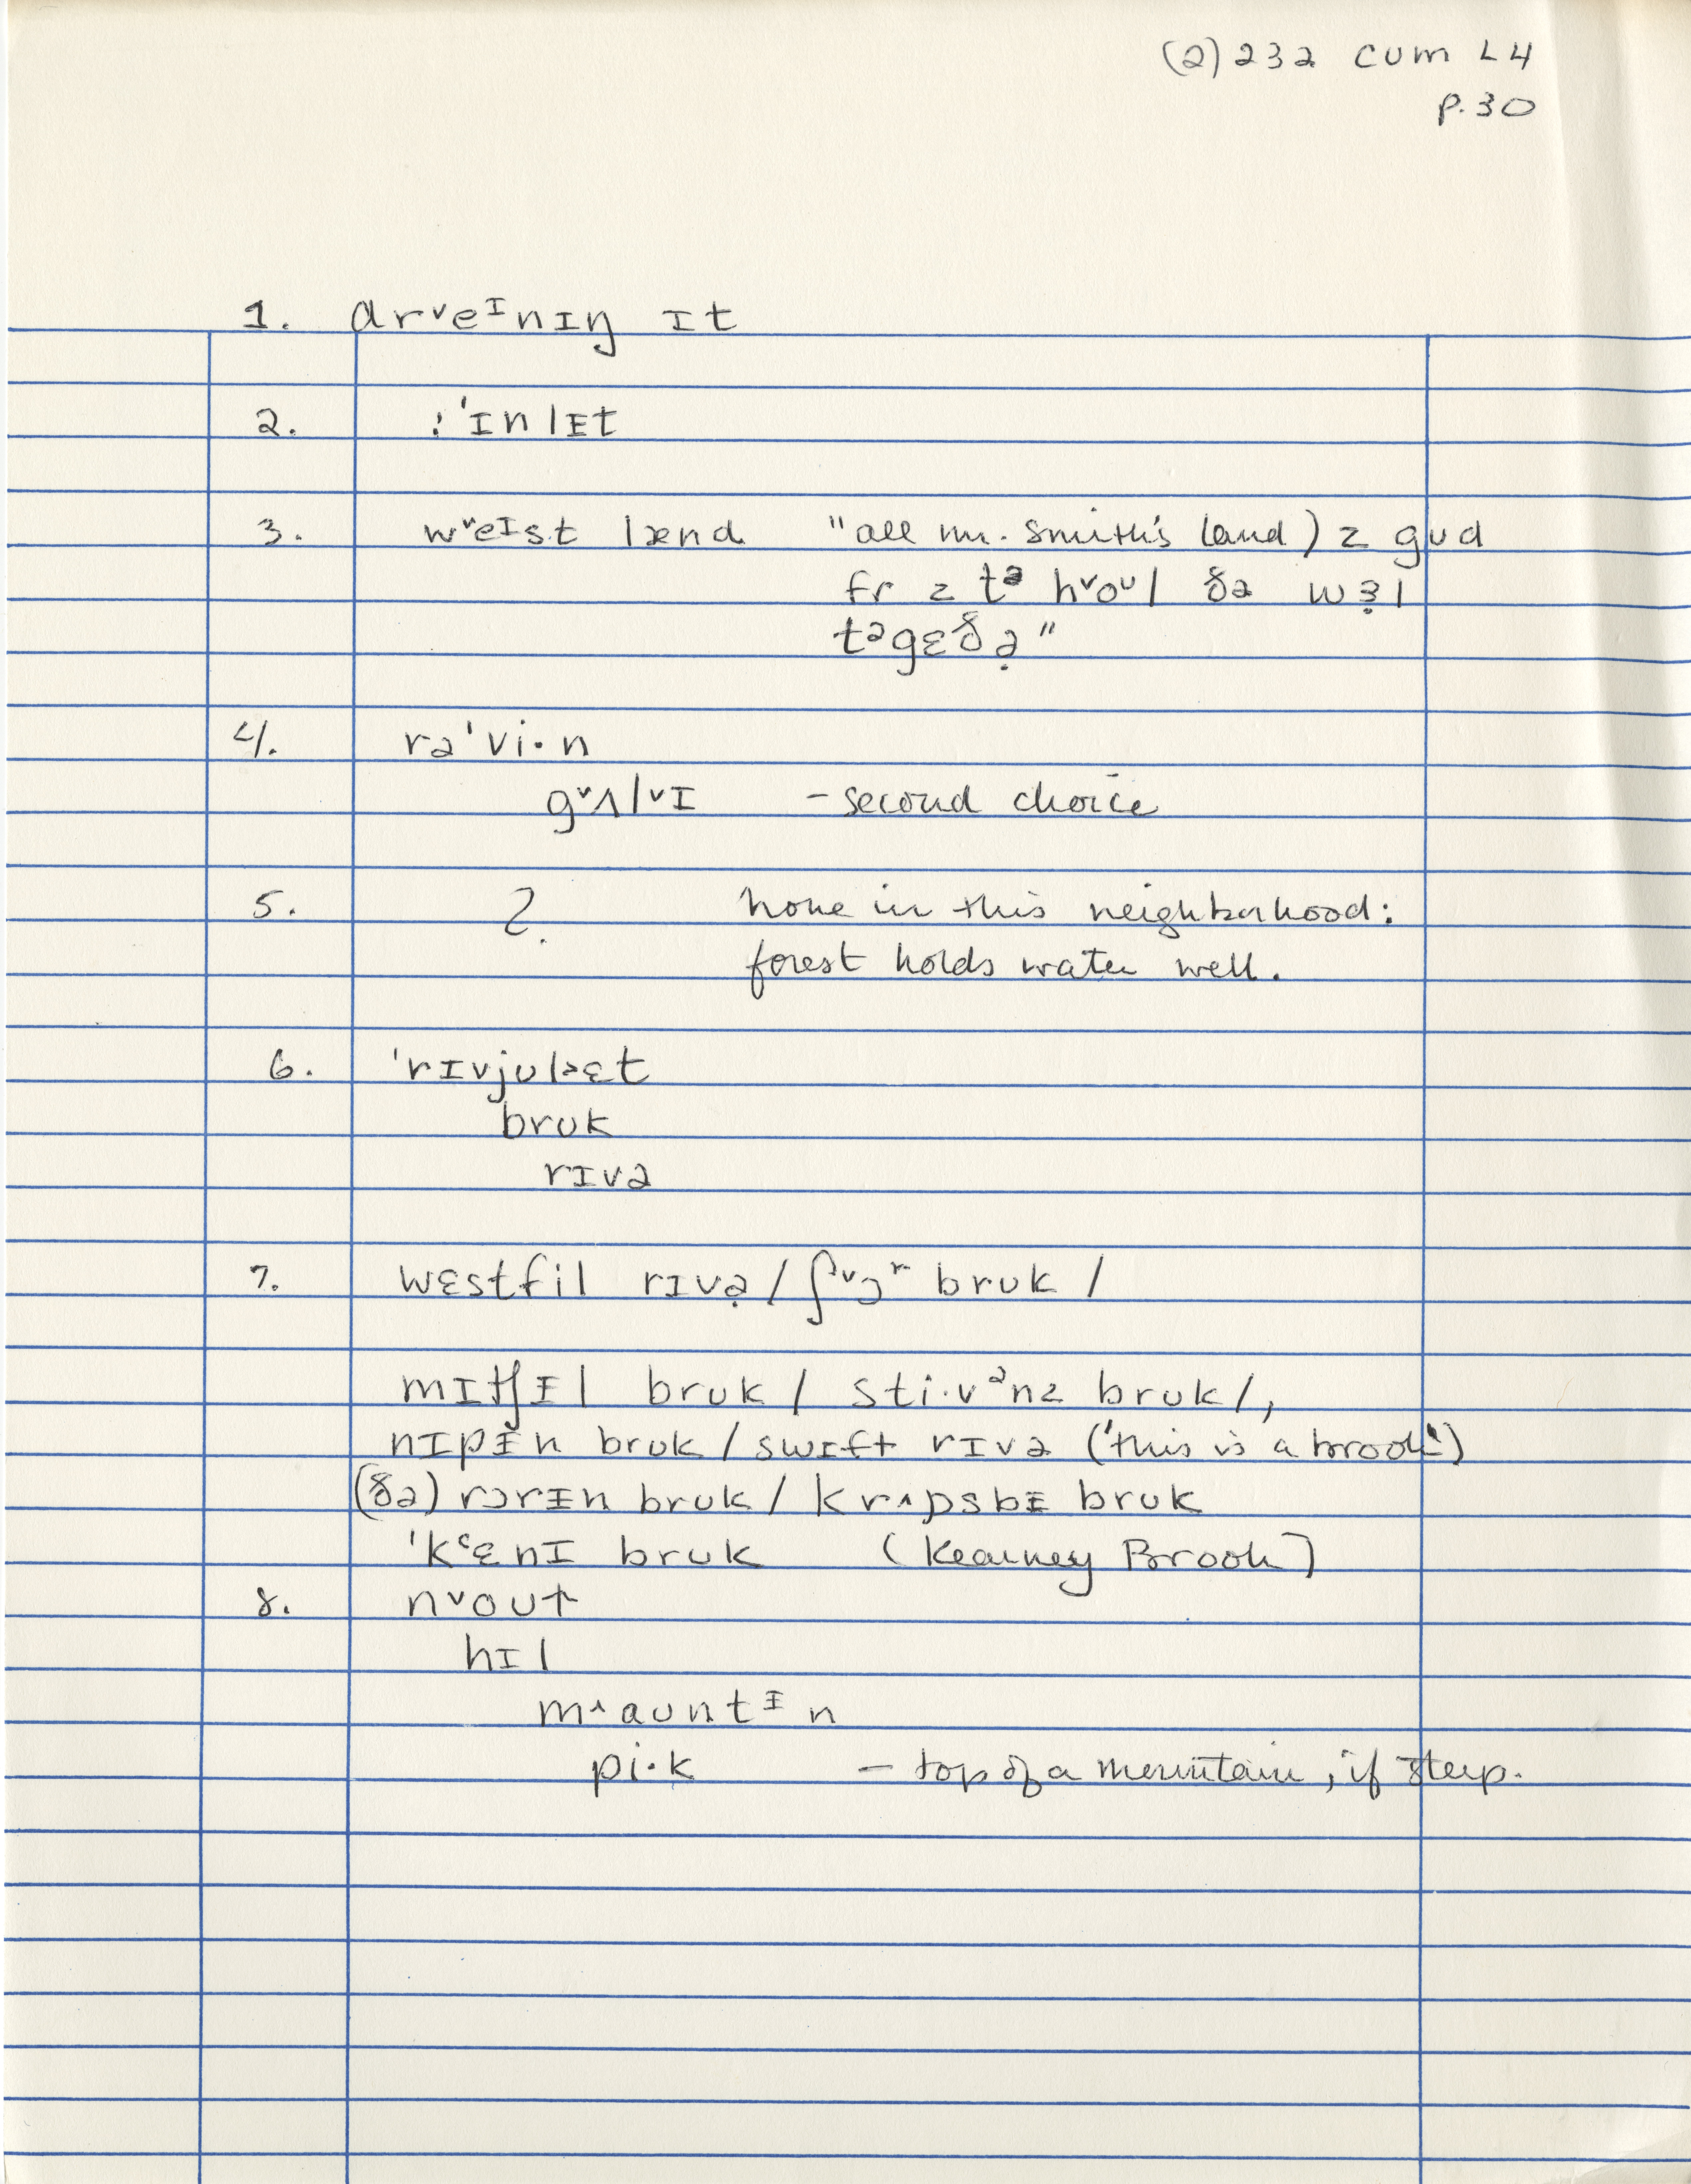 (2) 232 cum L4
p. 30
1. drᵛeᴵnɪŋ ɪt
2. ! 'ɪnlᴇt
3. wᵛeᴵst lænd "all mr. Smith's land) z gud
fr z tᵊ hᵛoᵘl ðə wɜ̣l
tᵊgɛðə̣"
4. rə'vi·n
gᵛʌlᵛɪ – second choice
5. ?. none in this neighborhood:
forest holds water well.
6. 'rɪvjul˃ɛt
bruk
rɪvə
7. wɛstfil rɪvə̣ / ʃᵛɔʳ bruk /
mɪtʃɪ̵l bruk / sti·vᵊnz bruk /,
nɪpɪ̵n bruk / swɪft rɪvə ('this is a brook')
(ðə) rɔrɪ̵n bruk / kr˄ɒsbɪ̵ bruk
'kᶜɛnɪ bruk (Kearney Brook)
8. nᵛout
hɪl
m˄auntᵻn
pi·k – top of a mountain, if steep.